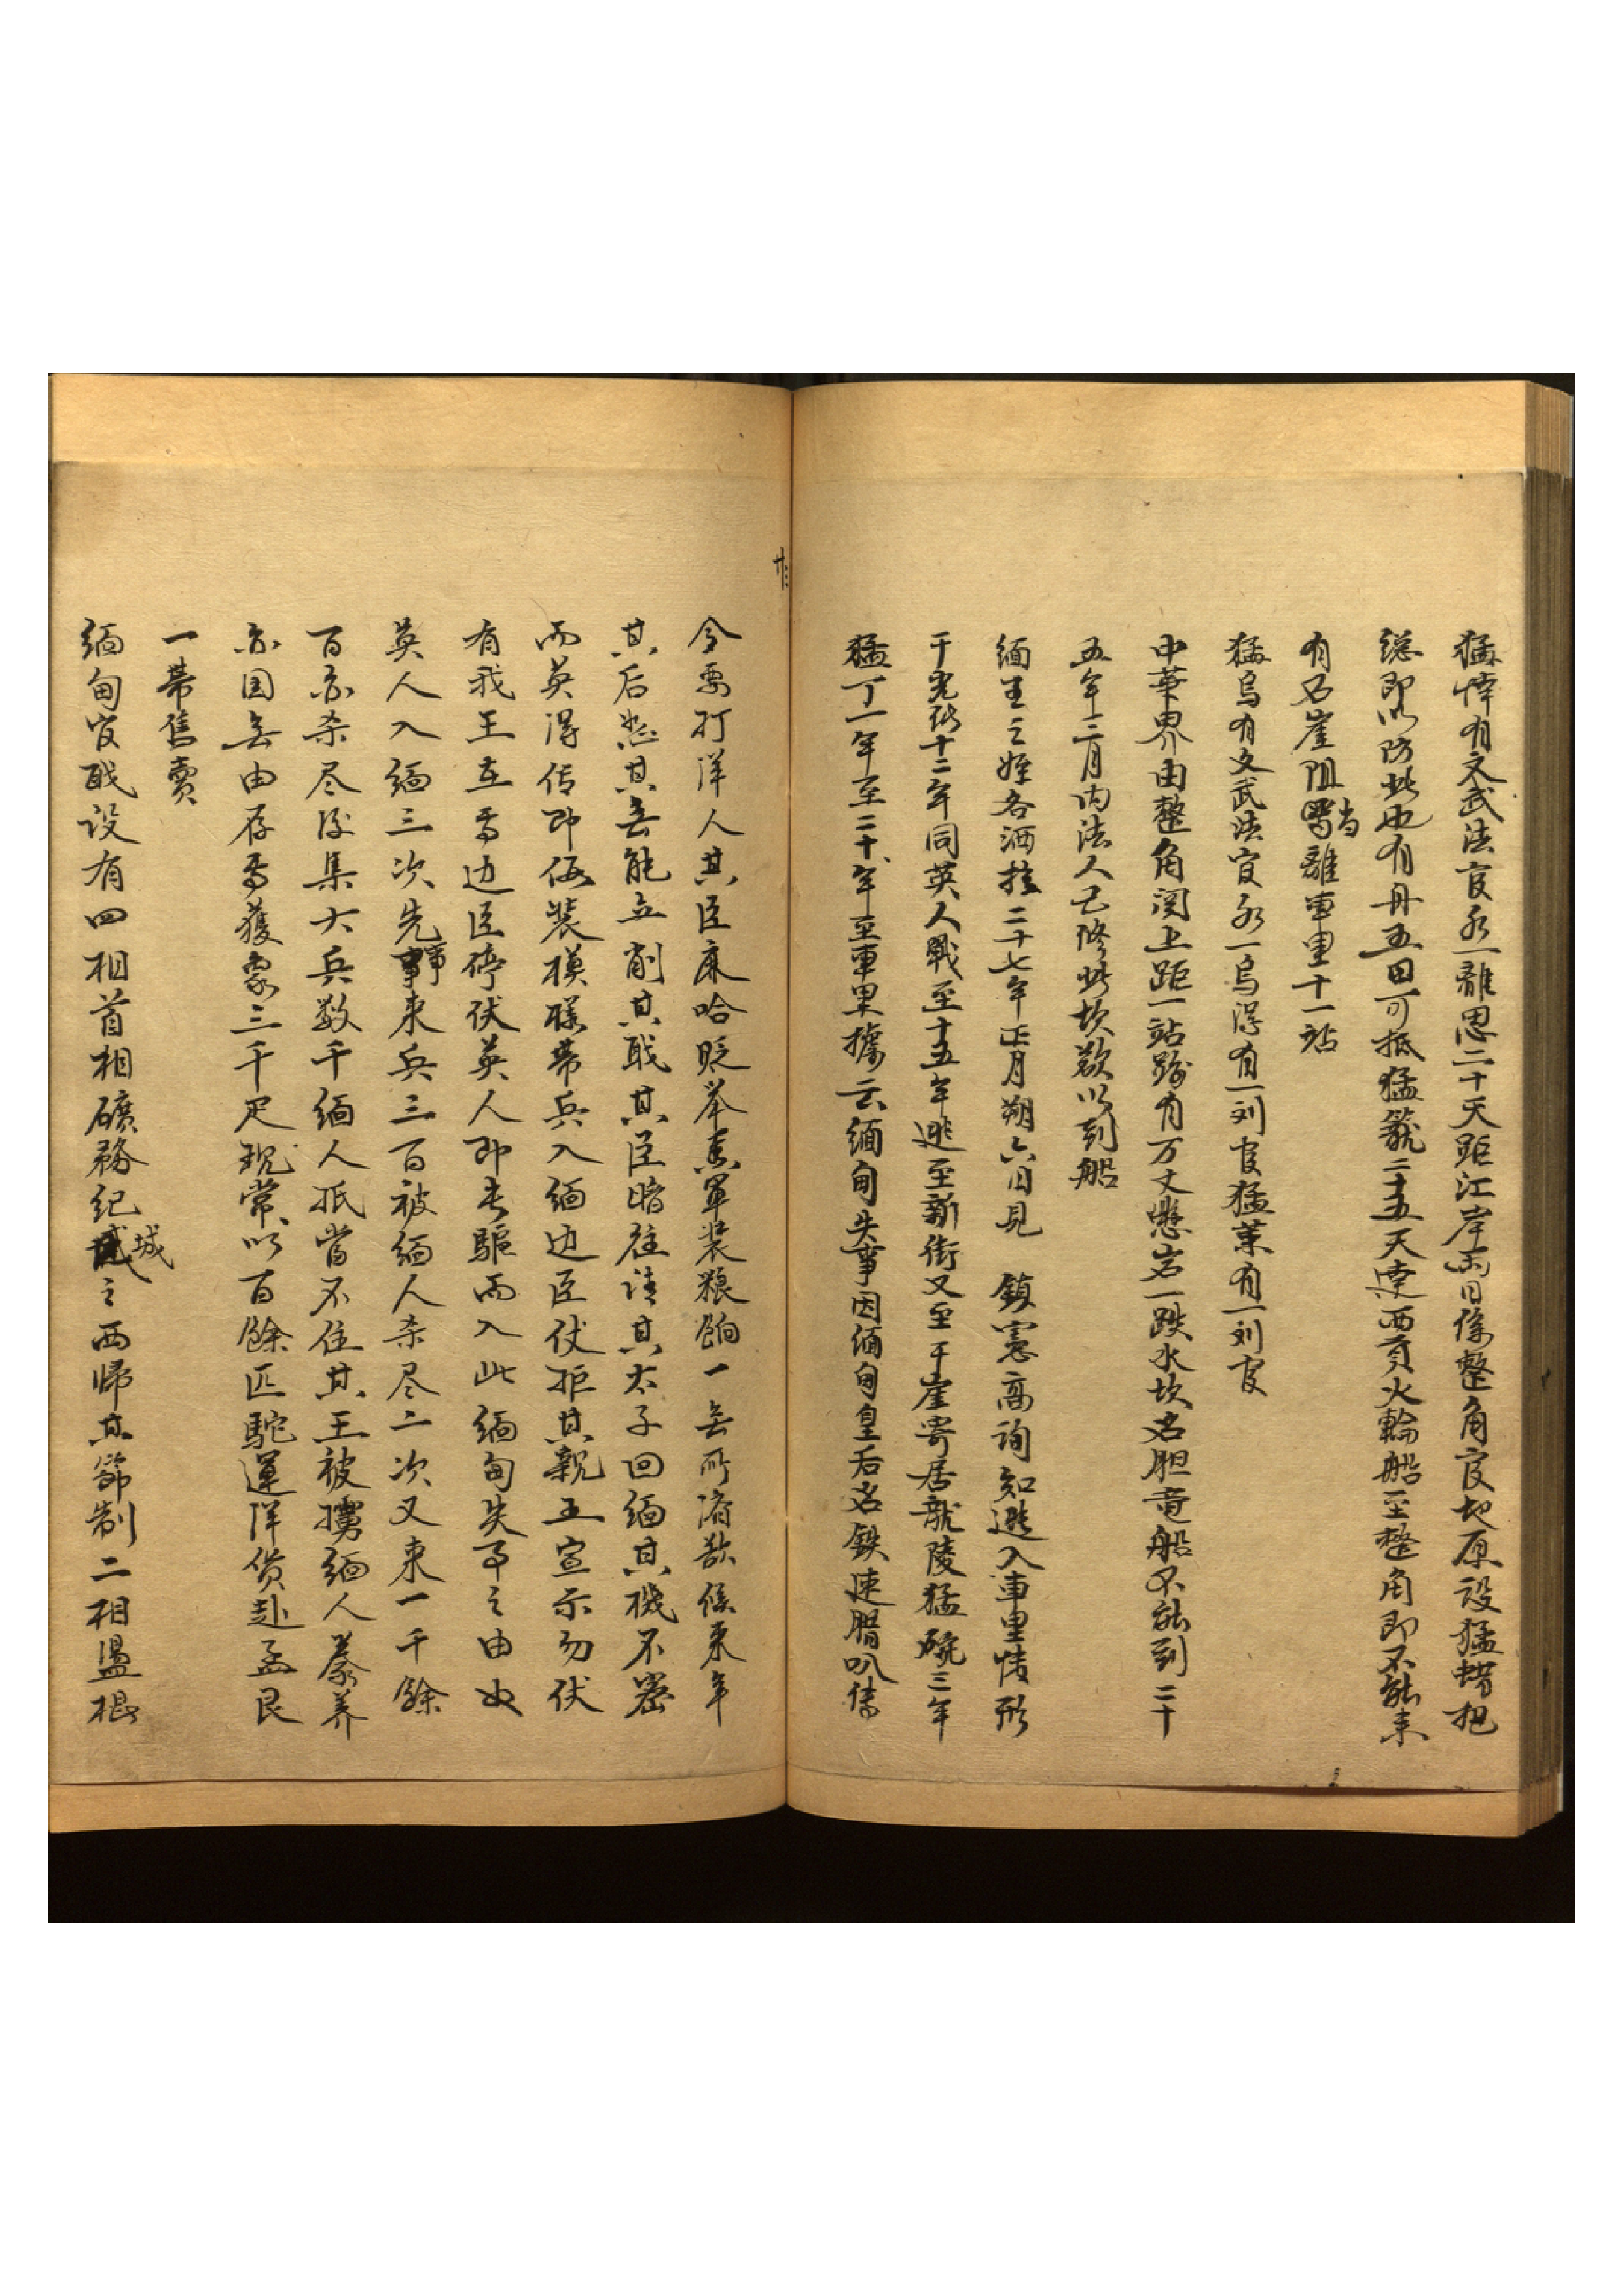 猛悻有文武法官永一離思二十天距江岸兩日係整角官地原設猛蜡把
總即以防此也有丹五田可抵猛籠二十五天達西貢火輪船至整角即不能来
有石崖阻当離車里十一站
猛烏有文武法官永一烏得有一刘官猛莱有一刘官
中華界由整角関上距一站路有万丈懸岩一跌水坎名胆竜船不能到二十
五年三月内法人已修此坎欲以到船
緬王之姪名洒拄二十七年正月朔六日見 鎮憲高詢知逃入車里情形
于光緒十二年同英人戰至十五年逃至新街又至干崖寄居龍陵猛碗三年
猛丁一年至二十年至車里據云緬甸失事因緬甸皇后名鉄速腊叭傳
廿三
令要打洋人其臣康哈貶举奏軍装粮餉一無所済欲候来年
其后怒其無能立削其戝其臣暗往請其太子回緬其機不密
而英得传即假装模様帶兵入緬边臣仗拒其親王宣示勿伏
有我王在焉边臣停伏英人即長驅而入此緬甸失事之由也
英人入緬三次先事来兵三百被緬人杀尽二次又来一千餘
百亦杀尽後集大兵数千緬人抵當不住其王被擄緬人豢养
亦国無由存焉獲象三千疋現常以百餘匹駝運洋貨赴孟艮
一帶售賣
緬甸官戝设有四相首相礦務紀城之西帰其節制二相温棍